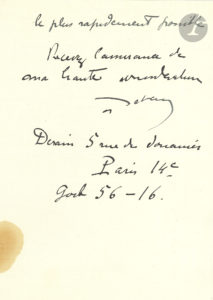 le plus rapidement possible
Recevez l'assurance de
ma haute considération
a derain
Derain 5 rue de Douanier
Paris 14e
Gob 56-16.